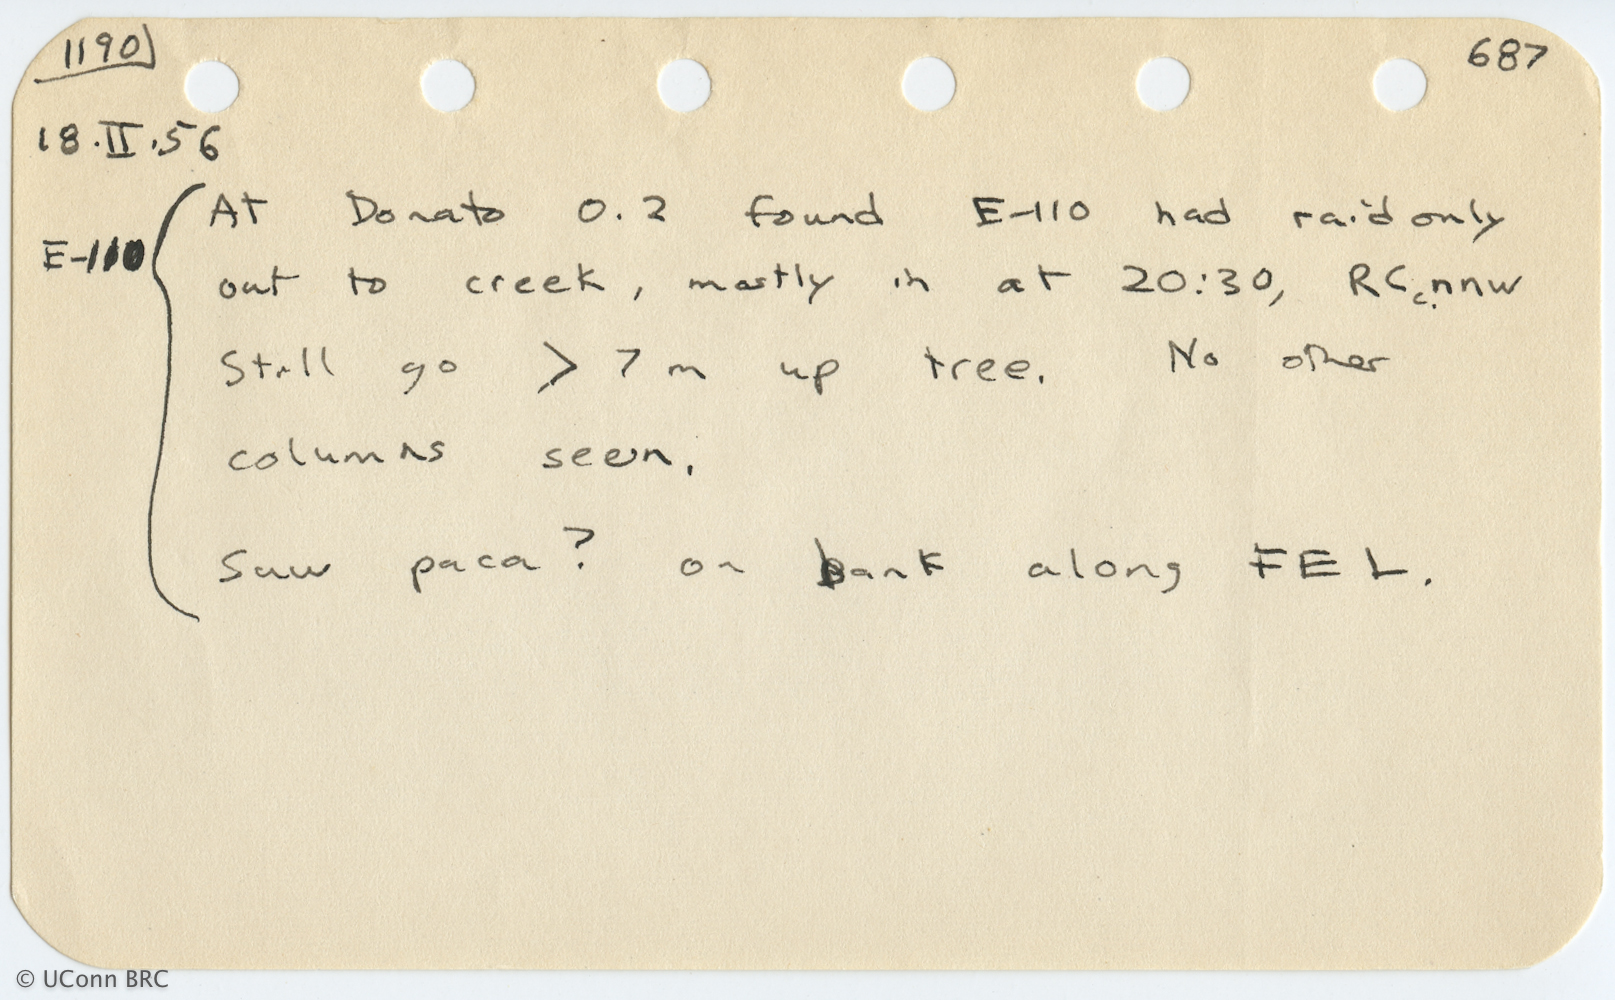 1190
687
18.II.56
At Donato 0.2 found E-110 had raid only
E-110
out to creek, mostly in at 20:30, RC c. nnw
Still go > 7 m up tree. No other
columns seen.
Saw paca? on bank along FEL.
© UConn BRC